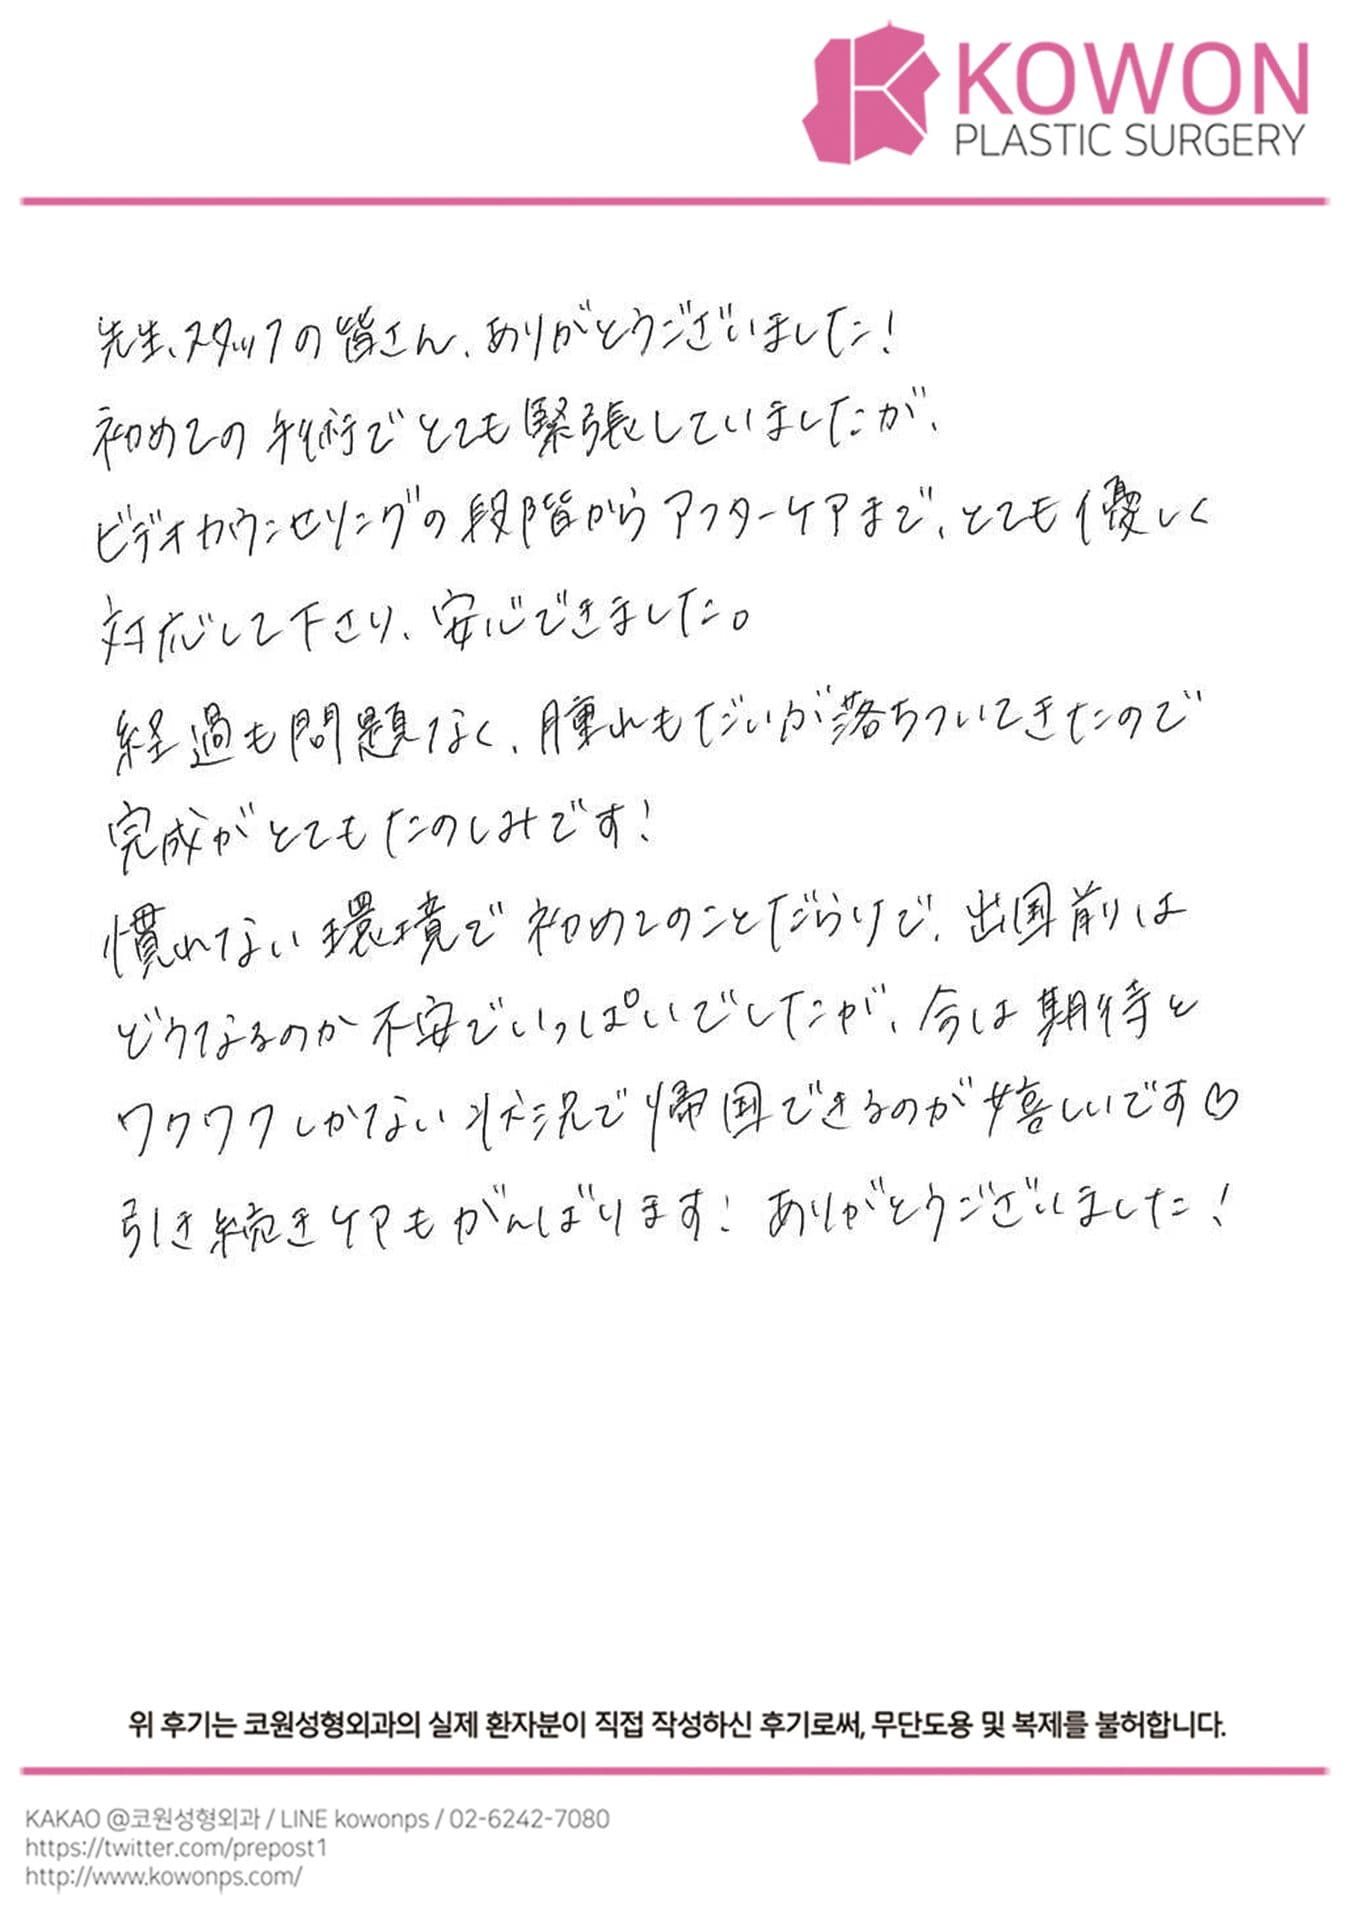 KOWON
PLASTIC SURGERY
先生、スタッフの皆さん、ありがとうございました!
初めての手術でとても緊張していましたが、
ビデオカウンセリングの段階からアフターケアまで、とても優しく
対応して下さり、安心できました。
経過も問題なく、腫れもだいが落ちついてきたので
完成がとてもたのしみです!
慣れない環境で初めてのことだらけで、出国前は
どうなるのか不安でいっぱいでしたが、今は期待と
ワクワクしかない状況で帰国できるのが嬉しいです♡
引き続きケアもがんばります! ありがとうございました!
위 후기는 코원성형외과의 실제 환자분이 직접 작성하신 후기로써, 무단도용 및 복제를 불허합니다.
KAKAO @코원성형외과 / LINE kowonps / 02-6242-7080
https://twitter.com/prepost1
http://www.kowonps.com/